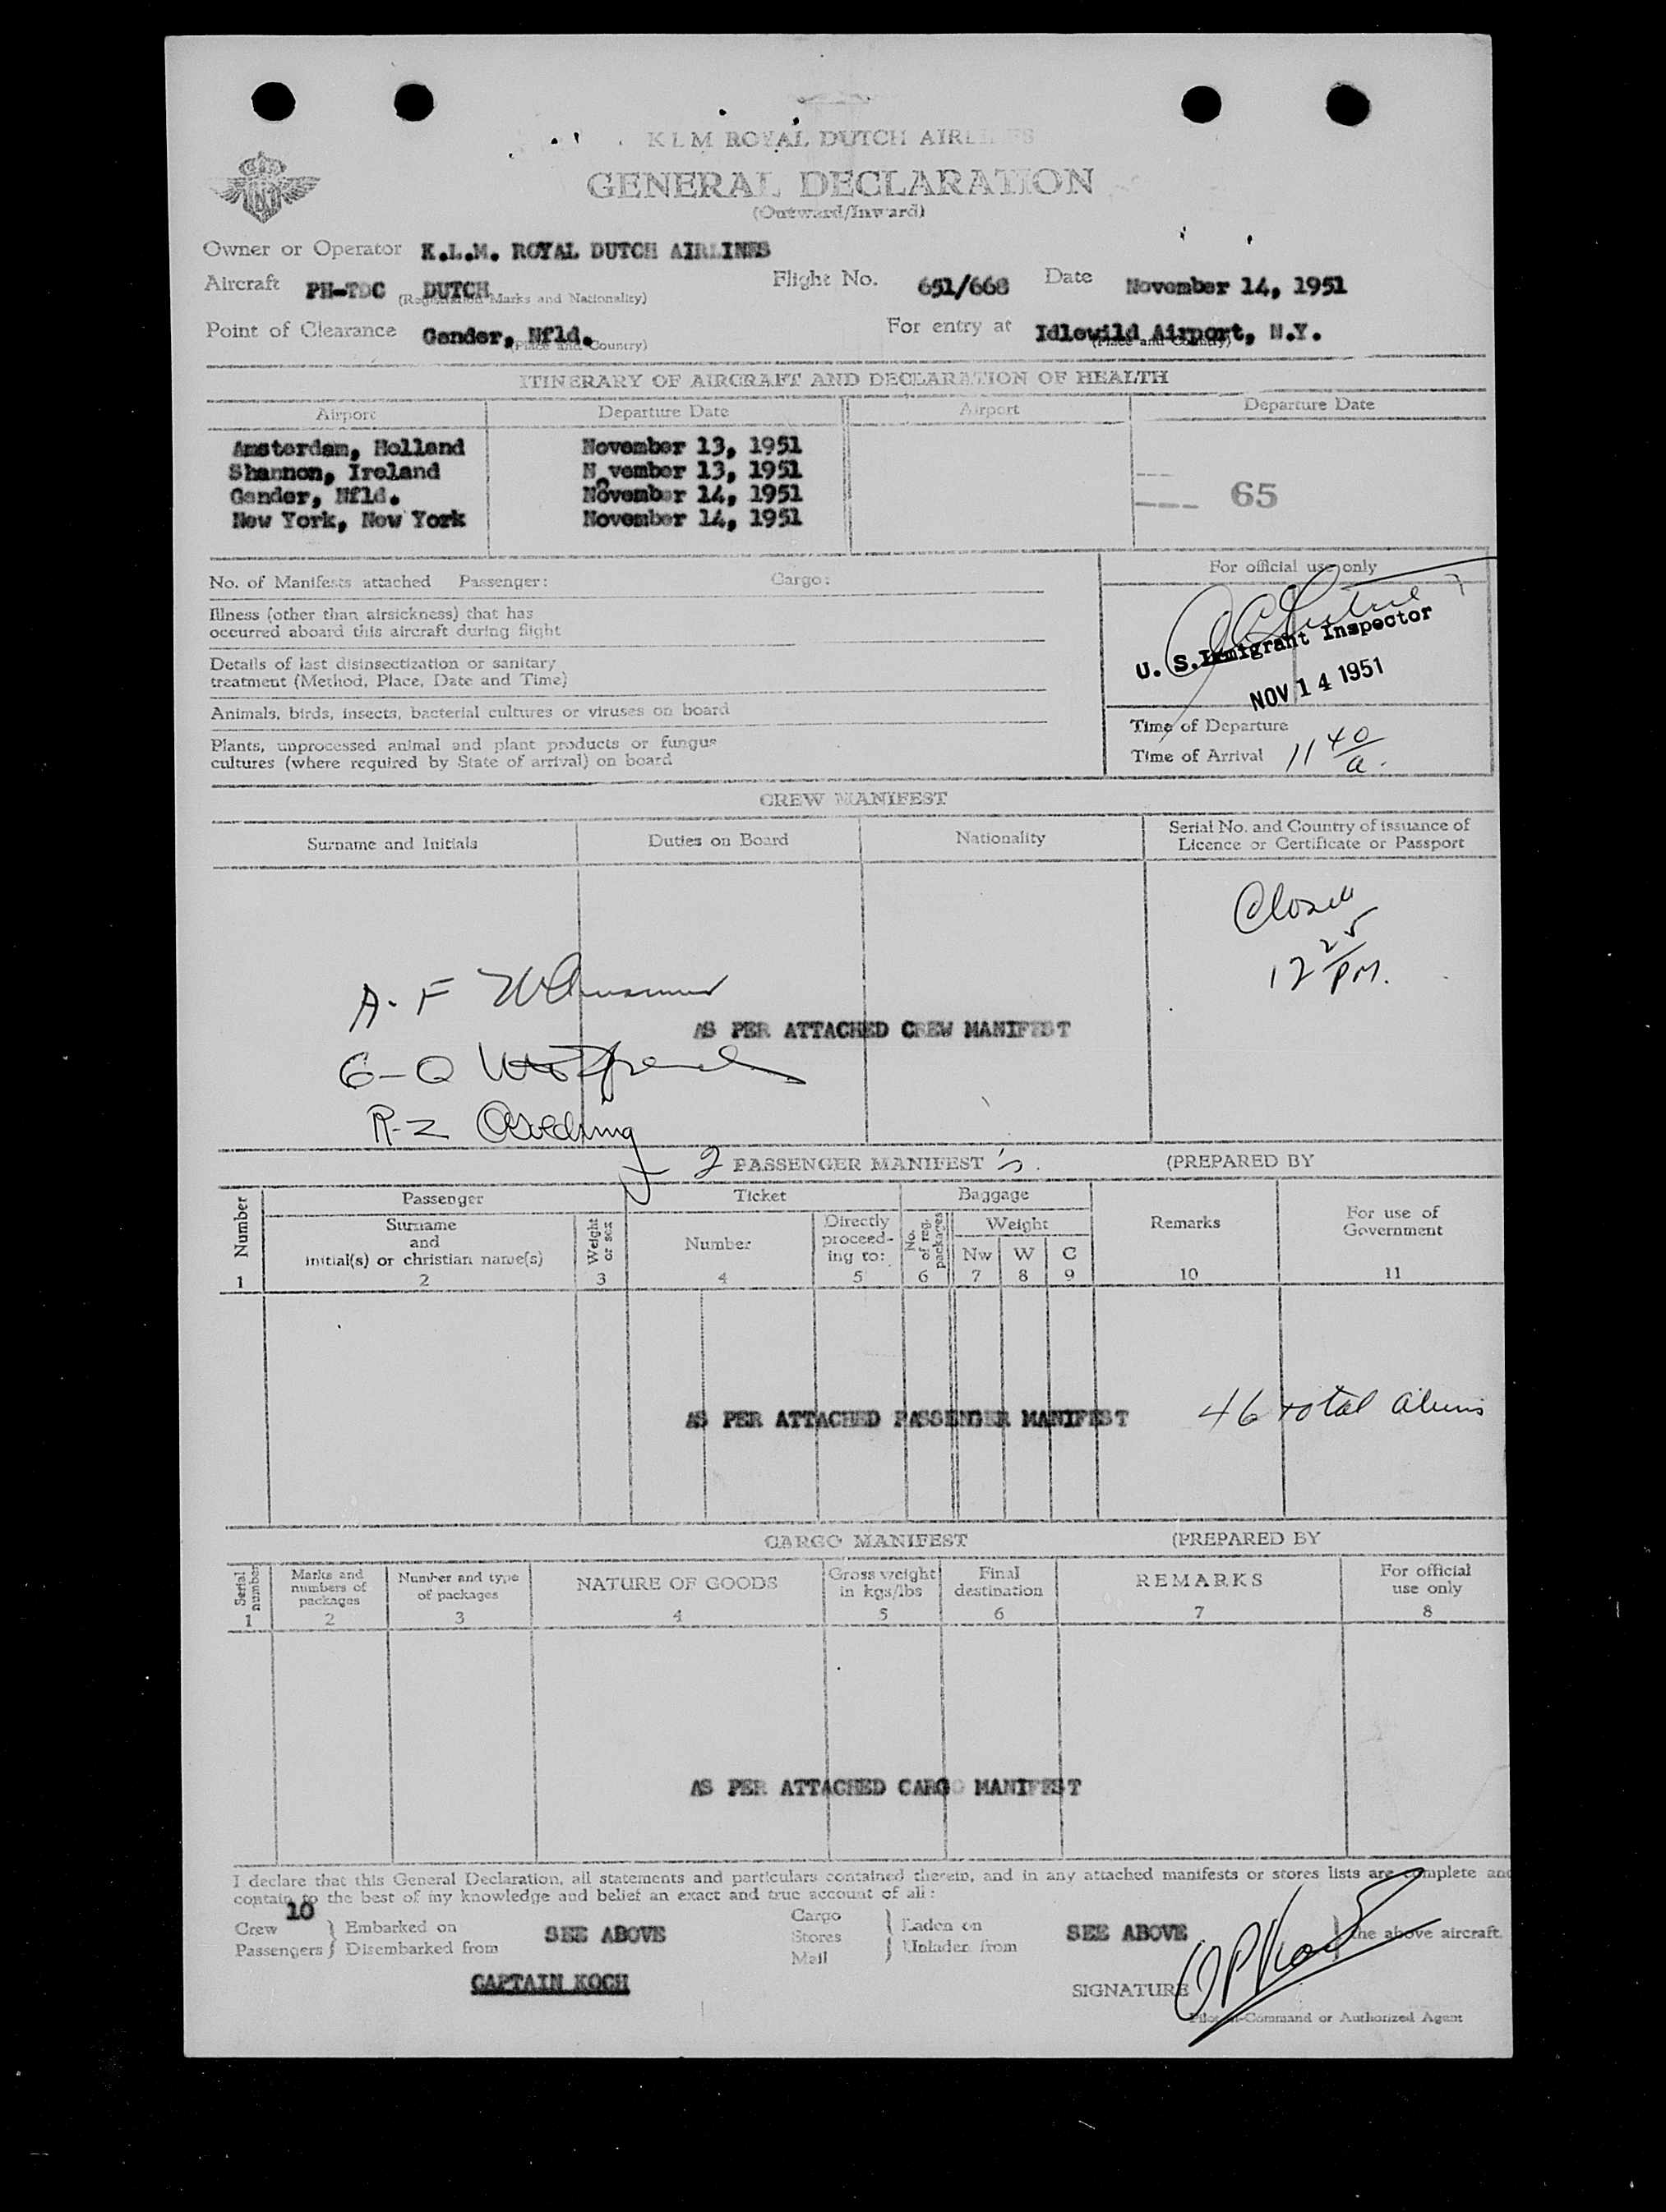 KLM ROYAL DUTCH AIRLINES
GENERAL DECLARATION
(Outward/Inward)
Owner or Operator K.L.M. ROYAL DUTCH AIRLINES
Aircraft PH-TDC DUTCH (Registration Marks and Nationality) Flight No. 651/668 Date November 14, 1951
Point of Clearance Gander, Nfld. (Place and Country) For entry at Idlewild Airport, N.Y. (Place and Country)
ITINERARY OF AIRCRAFT AND DECLARATION OF HEALTH
Airport Departure Date Airport Departure Date
Amsterdam, Holland November 13, 1951
Shannon, Ireland November 13, 1951
Gander, Nfld. November 14, 1951 65
New York, New York November 14, 1951
No. of Manifests attached Passenger: Cargo: For official use only
Illness (other than airsickness) that has
occurred aboard this aircraft during flight
U. S. Immigrant Inspector
Details of last disinsectization or sanitary
treatment (Method, Place, Date and Time)
NOV 14 1951
Animals, birds, insects, bacterial cultures or viruses on board
Time of Departure
Plants, unprocessed animal and plant products or fungus
cultures (where required by State of arrival) on board
Time of Arrival 11 40 a.
CREW MANIFEST
Surname and Initials Duties on Board Nationality Serial No. and Country of issuance of
Licence or Certificate or Passport
Closed
12 25 PM.
A-F
AS PER ATTACHED CREW MANIFEST
G-Q
R-Z
2 PASSENGER MANIFEST's. (PREPARED BY
Number Passenger Ticket Baggage
Surname
and
initial(s) or christian name(s) Weight or sex Number Directly
proceed-
ing to: No. of reg. packages Weight Nw W C Remarks For use of
Government
1 2 3 4 5 6 7 8 9 10 11
AS PER ATTACHED PASSENGER MANIFEST 46 total aliens
CARGO MANIFEST (PREPARED BY
Serial number Marks and
numbers of
packages Number and type
of packages NATURE OF GOODS Gross weight
in kgs/lbs Final
destination REMARKS For official
use only
1 2 3 4 5 6 7 8
AS PER ATTACHED CARGO MANIFEST
I declare that this General Declaration, all statements and particulars contained therein, and in any attached manifests or stores lists are complete and
contain to the best of my knowledge and belief an exact and true account of all:
10
Crew } Embarked on SEE ABOVE Cargo } Laden on SEE ABOVE } the above aircraft.
Passengers } Disembarked from Stores } Unladen from
Mail
CAPTAIN KOCH SIGNATURE OPKoch
Pilot-in-Command or Authorized Agent